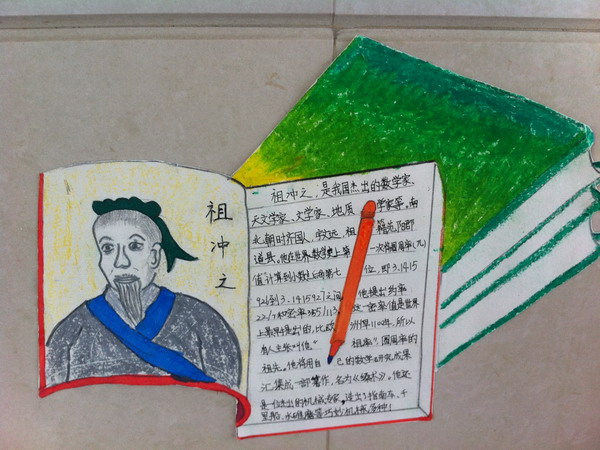 祖冲之
祖冲之，是我国杰出的数学家、
天文学家、文学家、地质 学家等。南
北朝时齐国人，字文远，祖 籍范阳郡
道县。他在世界数学史上第 一次将圆周率(π)
值计算到小数点后第七 位，即3.1415
926到3.1415927之间 他提出约率
22/7和密率355/113 这一密率值是世界
上最早提出的，比欧 洲早1100年，所以
有人主张叫" 祖率",圆周率的
祖先。他将自 己的数学研究成果
汇集成一部著作，名为《缀术》。他还
是一位杰出的机械专家，造出了指南车、千
里船、水碓磨等巧妙机械多种！